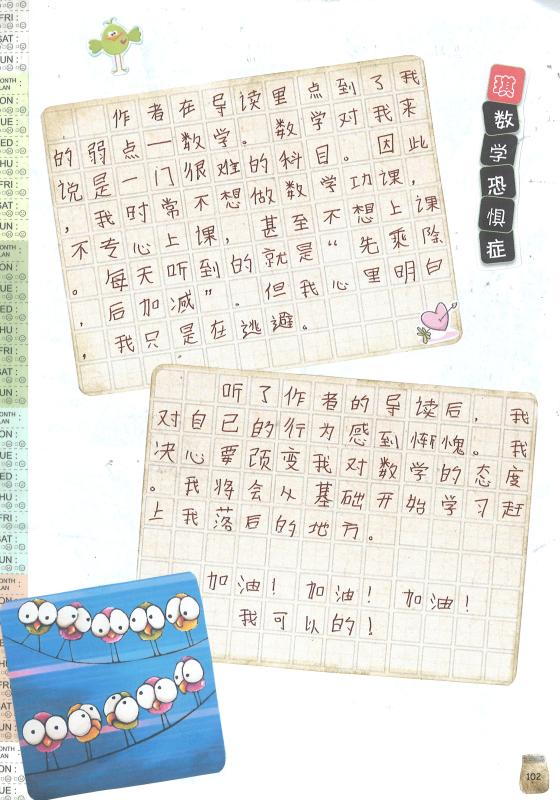 琪
数
学
恐
惧
症
作者在导读里点到了我
的弱点—数学。数学对我来
说是一门很难的科目。因此
，我时常不想做数学功课，
不专心上课，甚至不想上课
。每天听到的就是“先乘除
，后加减”。但我心里明白
，我只是在逃避。
听了作者的导读后，我
对自己的行为感到惭愧。我
决心要改变我对数学的态度
。我将会从基础开始学习赶
上我落后的地方。
加油！加油！加油！
我可以的！
102